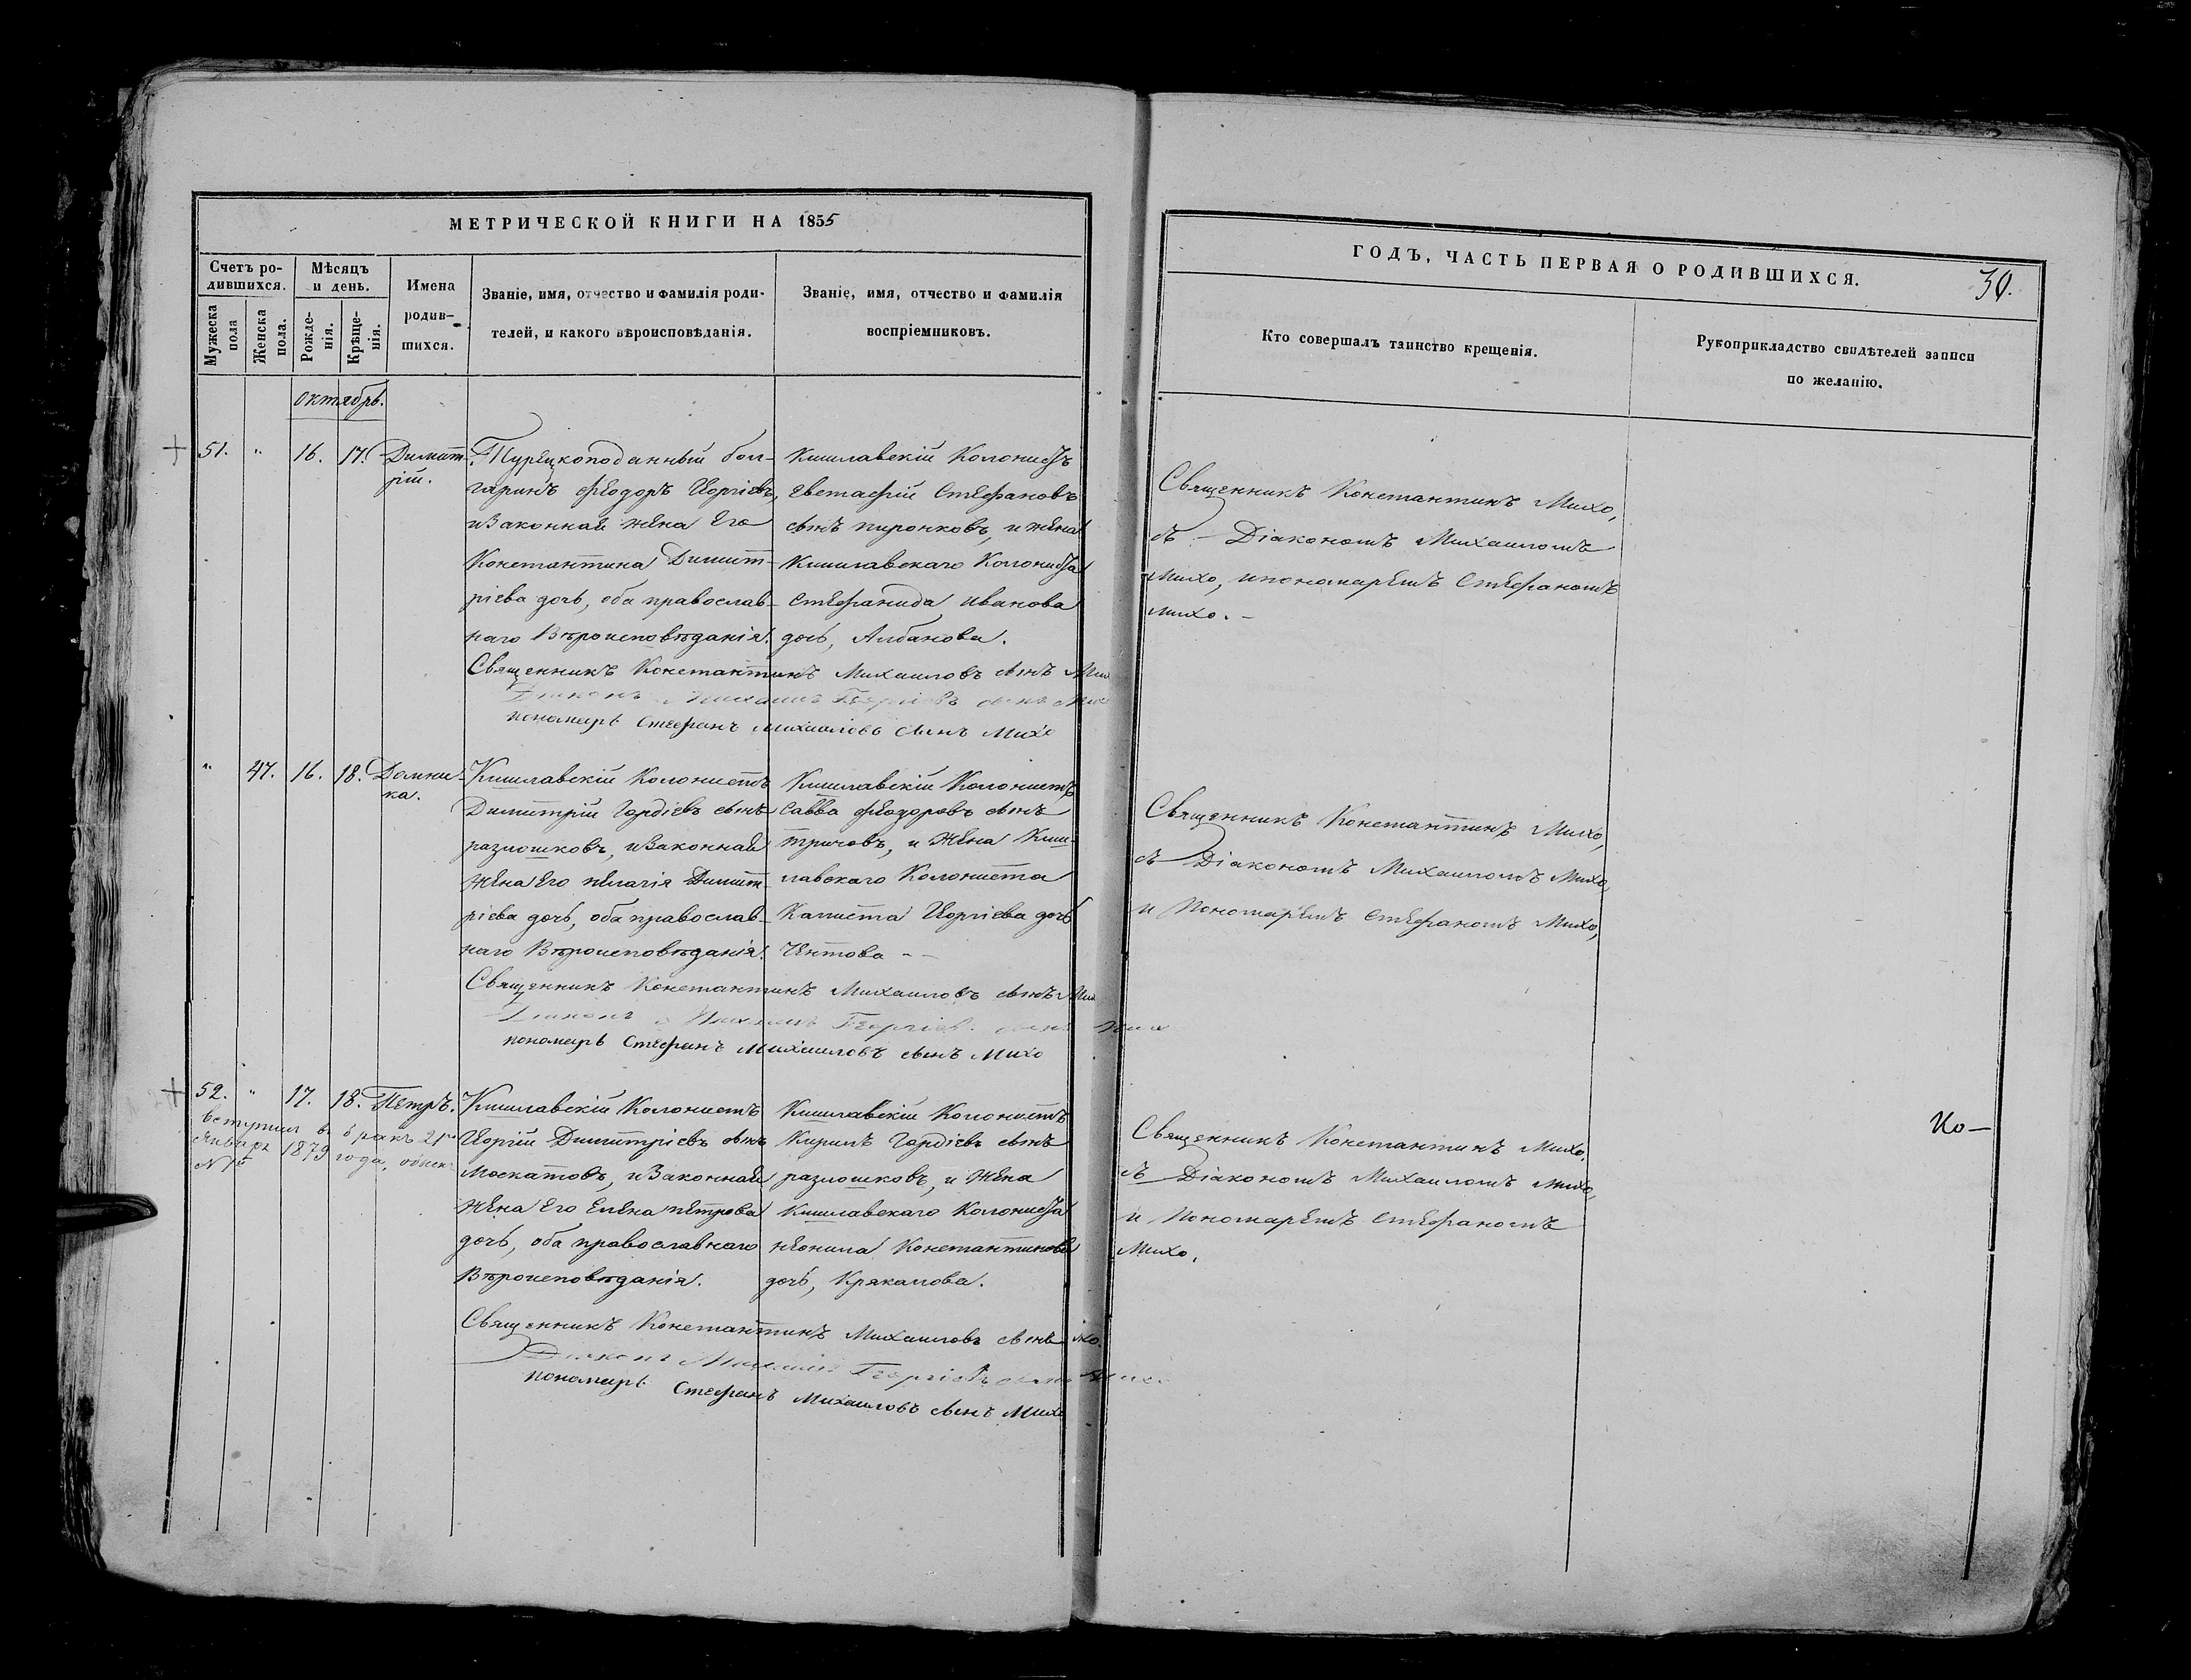 МЕТРИЧЕСКОЙ КНИГИ НА 1855
Счетъ ро-
дившихся.
Мѣсяцъ
и день.
Имена
родив-
шихся.
Мужеска
пола
Женска
пола.
Рожде-
нія.
Крѣще-
нія.
Званіе, имя, отчество и фамилія роди-
телей, и какого вѣроисповѣданія.
Званіе, имя, отчество и фамилія
воспріемниковъ.
октябрь.
51. " 16. 17. Димит-
рій.
Турецкоподанный бол-
гаринъ Феодоръ Георгіевъ,
и законная жена Его
Константина Димит-
ріева дочь, оба православ-
наго Вѣроисповѣданія.
Кишлавскій Колонистъ
Евстафій Стефановъ
сынъ пиронковъ, и жена
Кишлавскаго Колониста
Стефанида Иванова
дочь, Албанова.
Священникъ Константинъ Михаиловъ сынъ Мих
Діаконъ Михаилъ Георгіевъ сынъ Михо
пономарь Стефанъ Михаиловъ сынъ Михо
" 47. 16. 18. Домни-
ка.
Кишлавскій Колонистъ
Димитрій Гордіевъ сынъ
разлошковъ, и Законная
Жена Его пелагія Димит-
ріева дочь, оба православ-
наго Вѣроисповѣданія.
Кишлавскій Колонистъ
Савва Феодоровъ сынъ
тричовъ, и Жена Киш-
лавскаго Колониста
Калиста Георгіева дочь
Чентова - -
Священникъ Константинъ Михаиловъ сынъ Мих
Діаконъ Михаилъ Георгіевъ сынъ Михо
пономарь Стефанъ Михаиловъ сынъ Михо
52. " 17. 18. Петръ.
Вступил в бракъ 21го
Января 1879 года,
Кишлавскій Колонистъ
Георгій Димитріевъ сынъ
Москатовъ, и Законная
Жена Его Елена петрова
дочь, оба православнаго
Вѣроисповѣданія.
Кишлавскій Колонистъ
Кирилъ Гордіевъ сынъ
разлошковъ, и Жена
Кишлавскаго Колониста
неонила Константинова
дочь, Крякалова.
Священникъ Константинъ Михаиловъ сынъ Михо.
Діаконъ Михаилъ Георгіевъ сынъ Михо
пономарь Стефанъ Михаиловъ сынъ Михо
ГОДЪ, ЧАСТЬ ПЕРВАЯ О РОДИВШИХСЯ.
30.
Кто совершалъ таинство крещенія.
Рукоприкладство свидѣтелей записи
по желанію.
Священникъ Константинъ Михо,
съ Діакономъ Михаиломъ
Михо, и пономаремъ Стефаномъ
Михо. -
Священникъ Константинъ Михо,
съ Діакономъ Михаиломъ Михо,
и Пономаремъ Стефаномъ Михо,
Священникъ Константинъ Михо,
съ Діакономъ Михаиломъ Михо,
и Пономаремъ Стефаномъ
Михо.
Ко-